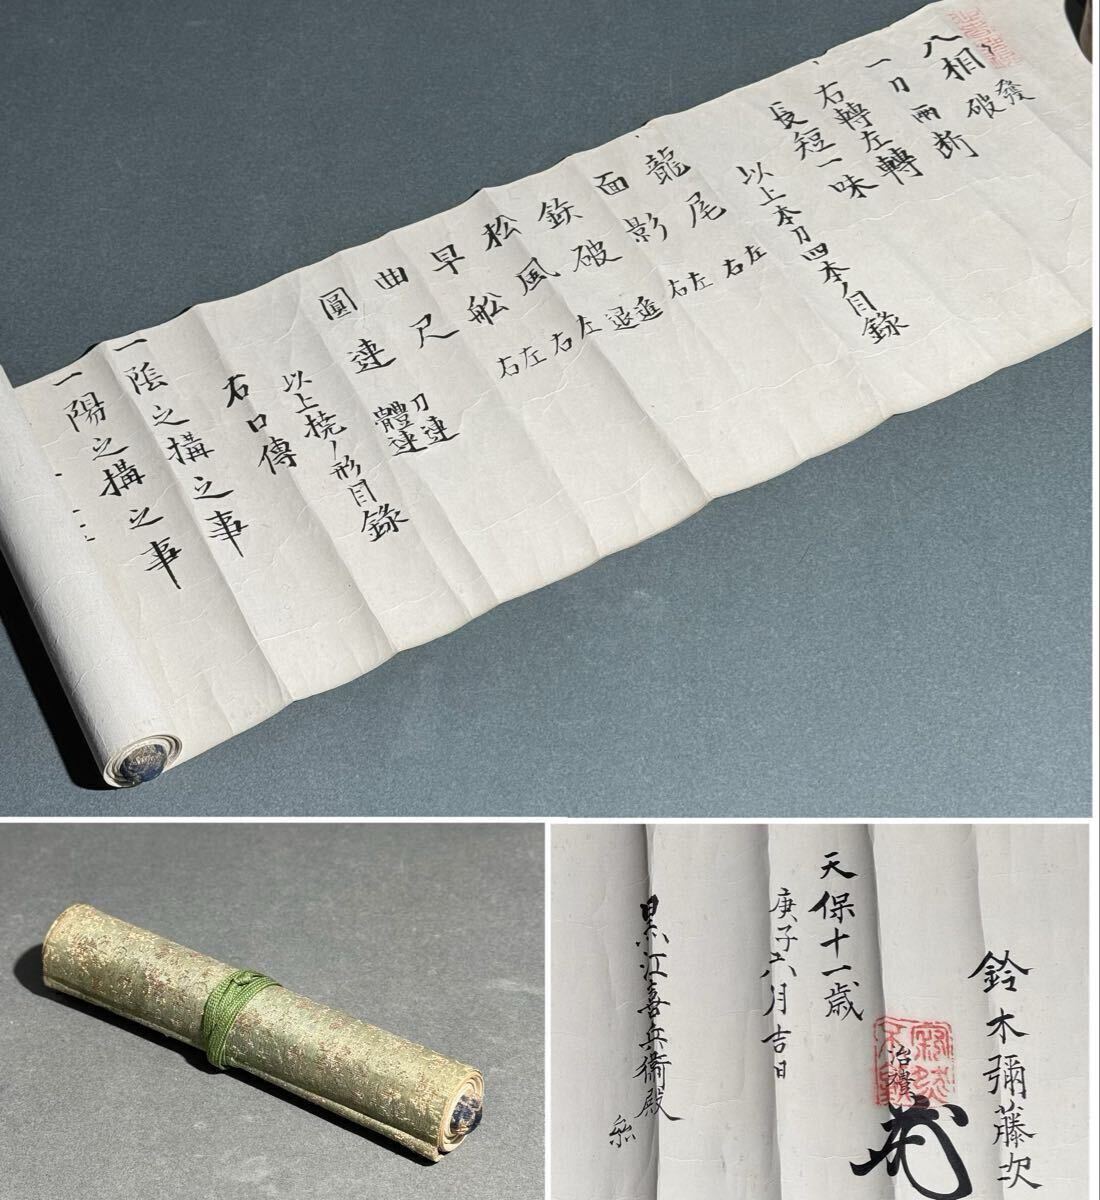 八相 發破
一刀両断
右轉左轉
長短一味
以上本刀四本ノ目録
龍尾 左右
面影 左右
鉃破 進退
松風 左右
早船 左右
曲尺
圓連 刀連 體連
以上撓ノ形目録
右口傳
一陰之搆之事
一陽之搆之事
鈴木彌藤次
治
天保十一歳
庚子六月吉日
黒江喜兵衛殿